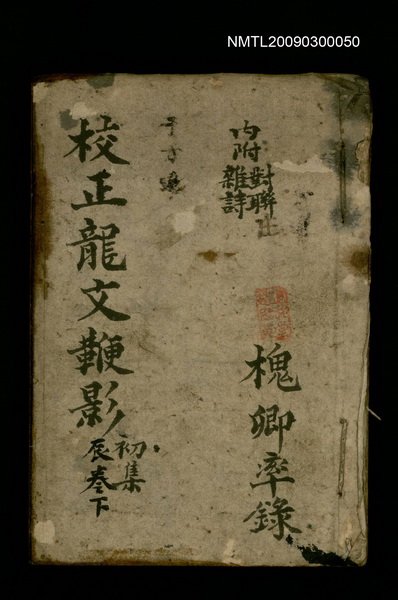 NMTL20090300050
內附
對聯
雜詩
槐卿率錄
校正龍文鞭影
初集
辰卷下